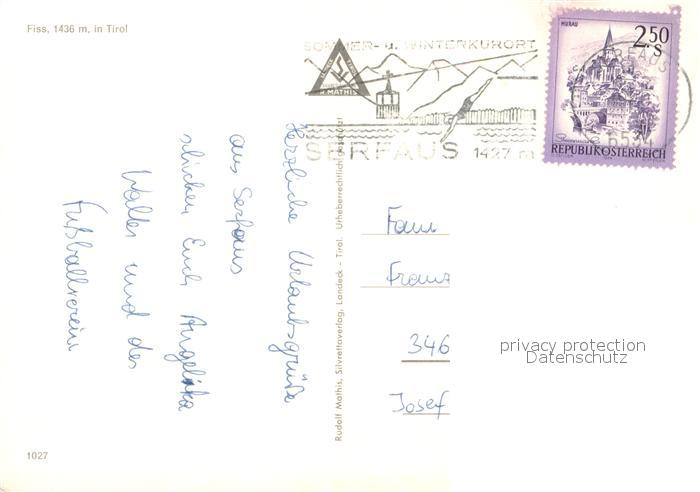 Fiss, 1436 m, in Tirol
SOMMER- u. WINTERKURORT
R. MATHIS
SERFAUS 1427 m
MURAU
2.50
S
REPUBLIK ÖSTERREICH
SERFAUS
6534
Herzliche Urlaubsgrüße
aus Serfaus
schicken Euch Angelika
Walter und der
Fußballverein
Rudolf Mathis, Silvrettaverlag, Landeck - Tirol. Urheberrechtlich geschützt
Fam
Franz
346
Josef
privacy protection
Datenschutz
1027